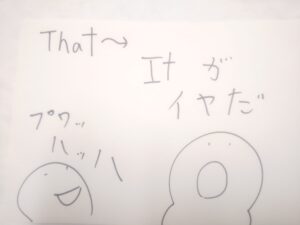 That〜
It が
イヤだ
プワッ
ハッハ